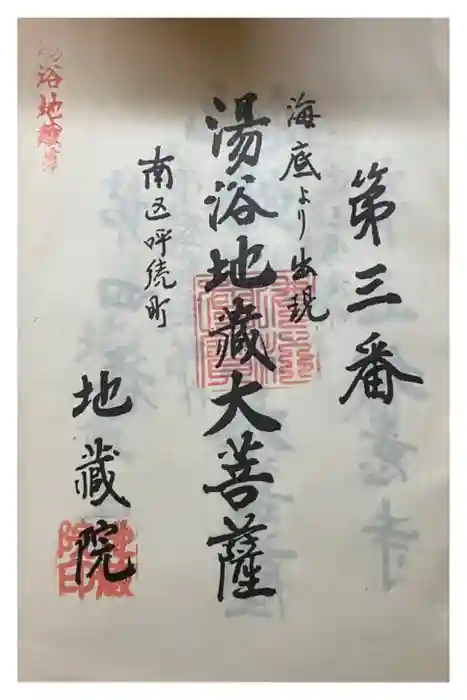 第三番
海底より出現
湯浴地藏大菩薩
南区呼続町
地蔵院
浴地蔵
地蔵院印